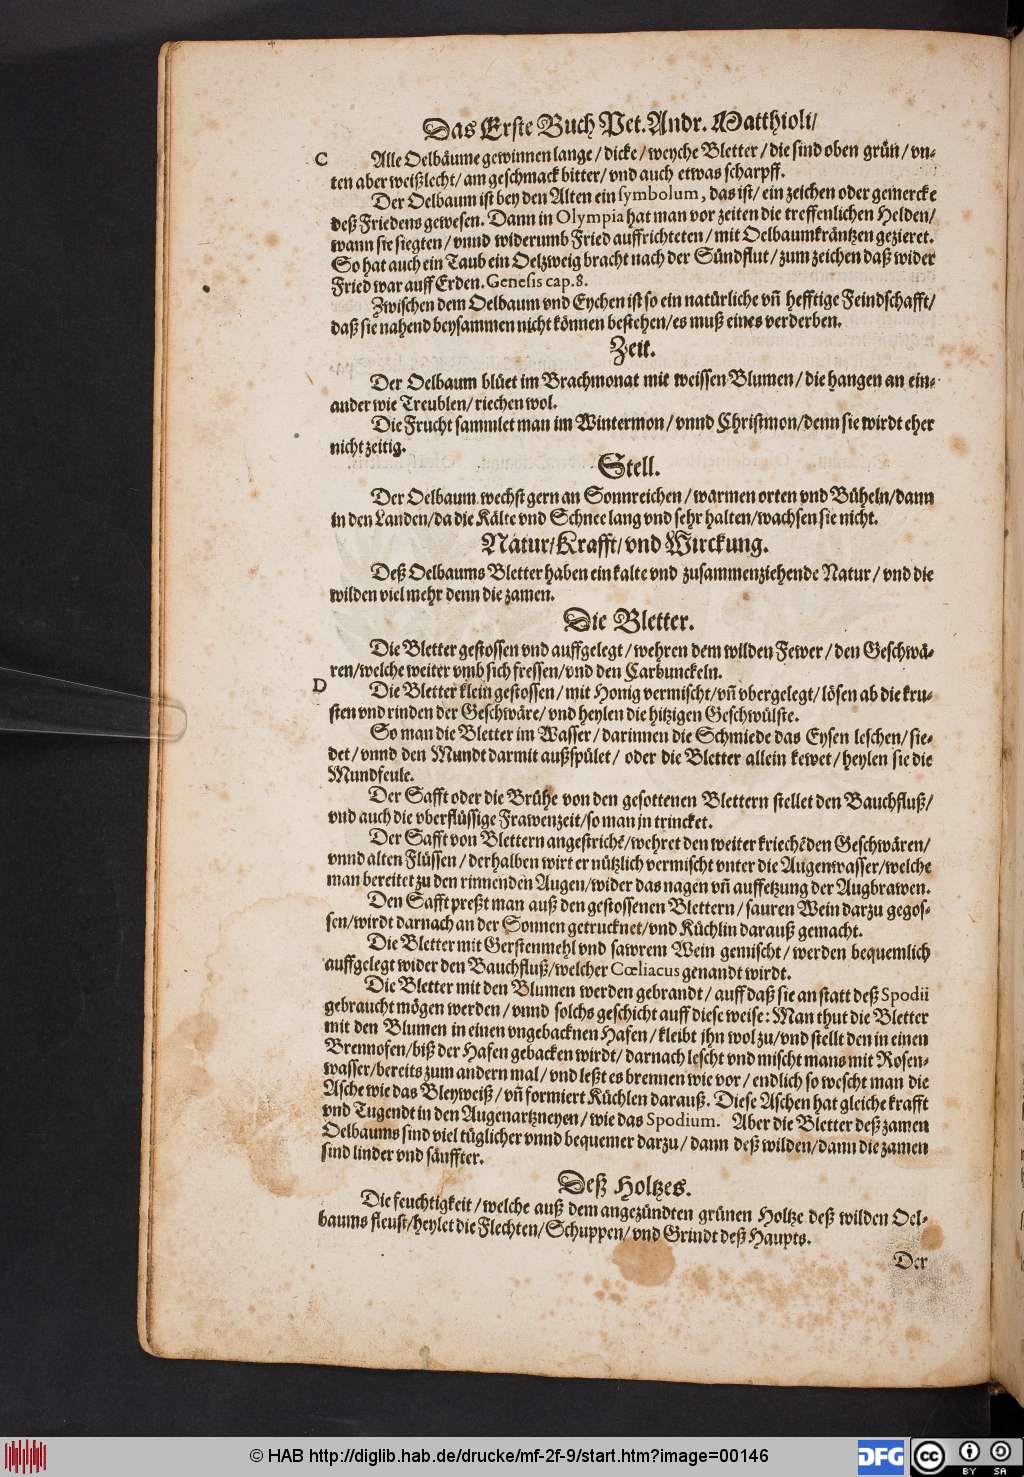 Das Erste Buch Pet. Andr. Matthioli/
C Alle Oelbäume gewinnen lange / dicke / weyche Bletter / die sind oben grün / vn-
ten aber weißlecht/ am geschmack bitter/ vnd auch etwas scharpff.
Der Oelbaum ist bey den Alten ein symbolum, das ist/ ein zeichen oder gemercke
deß Friedens gewesen. Dann in Olympia hat man vor zeiten die treffenlichen Helden/
wann sie siegten / vnnd widerumb Fried auffrichteten / mit Oelbaumkräntzen gezieret.
So hat auch ein Taub ein Oelzweig bracht nach der Sündflut / zum zeichen daß wider
Fried war auff Erden. Genesis cap. 8.
Zwischen dem Oelbaum vnd Eychen ist so ein natürliche vñ hefftige Feindschafft/
daß sie nahend beysammen nicht können bestehen/ es muß eines verderben.
Zeit.
Der Oelbaum blüet im Brachmonat mit weissen Blumen / die hangen an ein-
ander wie Treublen / riechen wol.
Die Frucht sammlet man im Wintermon / vnnd Christmon/ denn sie wirdt eher
nicht zeitig.
Stell.
Der Oelbaum wechst gern an Sonnreichen / warmen orten vnd Büheln/ dann
in den Landen/ da die Kälte vnd Schnee lang vnd sehr halten/ wachsen sie nicht.
Natur/ Krafft/ vnd Wirckung.
Deß Oelbaums Bletter haben ein kalte vnd zusammenziehende Natur / vnd die
wilden viel mehr denn die zamen.
Die Bletter.
Die Bletter gestossen vnd auffgelegt / wehren dem wilden Fewer / den Geschwä-
ren/ welche weiter vmb sich fressen/ vnd den Carbunckeln.
D Die Bletter klein gestossen / mit Honig vermischt/ vñ vbergelegt/ lösen ab die kru-
sten vnd rinden der Geschwäre/ vnd heylen die hitzigen Geschwülste.
So man die Bletter im Wasser / darinnen die Schmiede das Eysen leschen/ sie-
det / vnnd den Mundt darmit außspület / oder die Bletter allein kewet / heylen sie die
Mundfeule.
Der Safft oder die Brühe von den gesottenen Blettern stellet den Bauchfluß/
vnd auch die vberflüssige Frawenzeit/ so man jn trincket.
Der Safft von Blettern angestrichẽ/ wehret den weiter kriechẽden Geschwären/
vnnd alten Flüssen / derhalben wirt er nützlich vermischt vnter die Augenwasser/ welche
man bereitet zu den rinnenden Augen/ wider das nagen vñ auffetzung der Augbrawen.
Den Safft preßt man auß den gestossenen Blettern / sauren Wein darzu gegos-
sen/ wirdt darnach an der Sonnen getrucknet/ vnd Küchlin darauß gemacht.
Die Bletter mit Gerstenmehl vnd sawrem Wein gemischt / werden bequemlich
auffgelegt wider den Bauchfluß/ welcher Cœliacus genandt wirdt.
Die Bletter mit den Blumen werden gebrandt / auff daß sie an statt deß Spodii
gebraucht mögen werden / vnnd solchs geschicht auff diese weise: Man thut die Bletter
mit den Blumen in einen vngebacknen Hafen / kleibt jhn wol zu/ vnd stellt den in einen
Brennofen/ biß der Hafen gebacken wirdt / darnach lescht vnd mischt mans mit Rosen-
wasser/ bereits zum andern mal / vnd leßt es brennen wie vor / endlich so wescht man die
Asche wie das Bleyweiß / vñ formiert Küchlen darauß. Diese Aschen hat gleiche krafft
vnd Tugendt in den Augenartzneyen / wie das Spodium. Aber die Bletter deß zamen
Oelbaums sind viel tüglicher vnnd bequemer darzu / dann deß wilden/ dann die zamen
sind linder vnd sänffter.
Deß Holtzes.
Die feuchtigkeit / welche auß dem angezündten grünen Holtze deß wilden Oel-
baums fleust/ heylet die Flechten/ Schuppen/ vnd Grindt deß Haupts.
Der
© HAB http://diglib.hab.de/drucke/mf-2f-9/start.htm?image=00146
DFG
cc BY SA